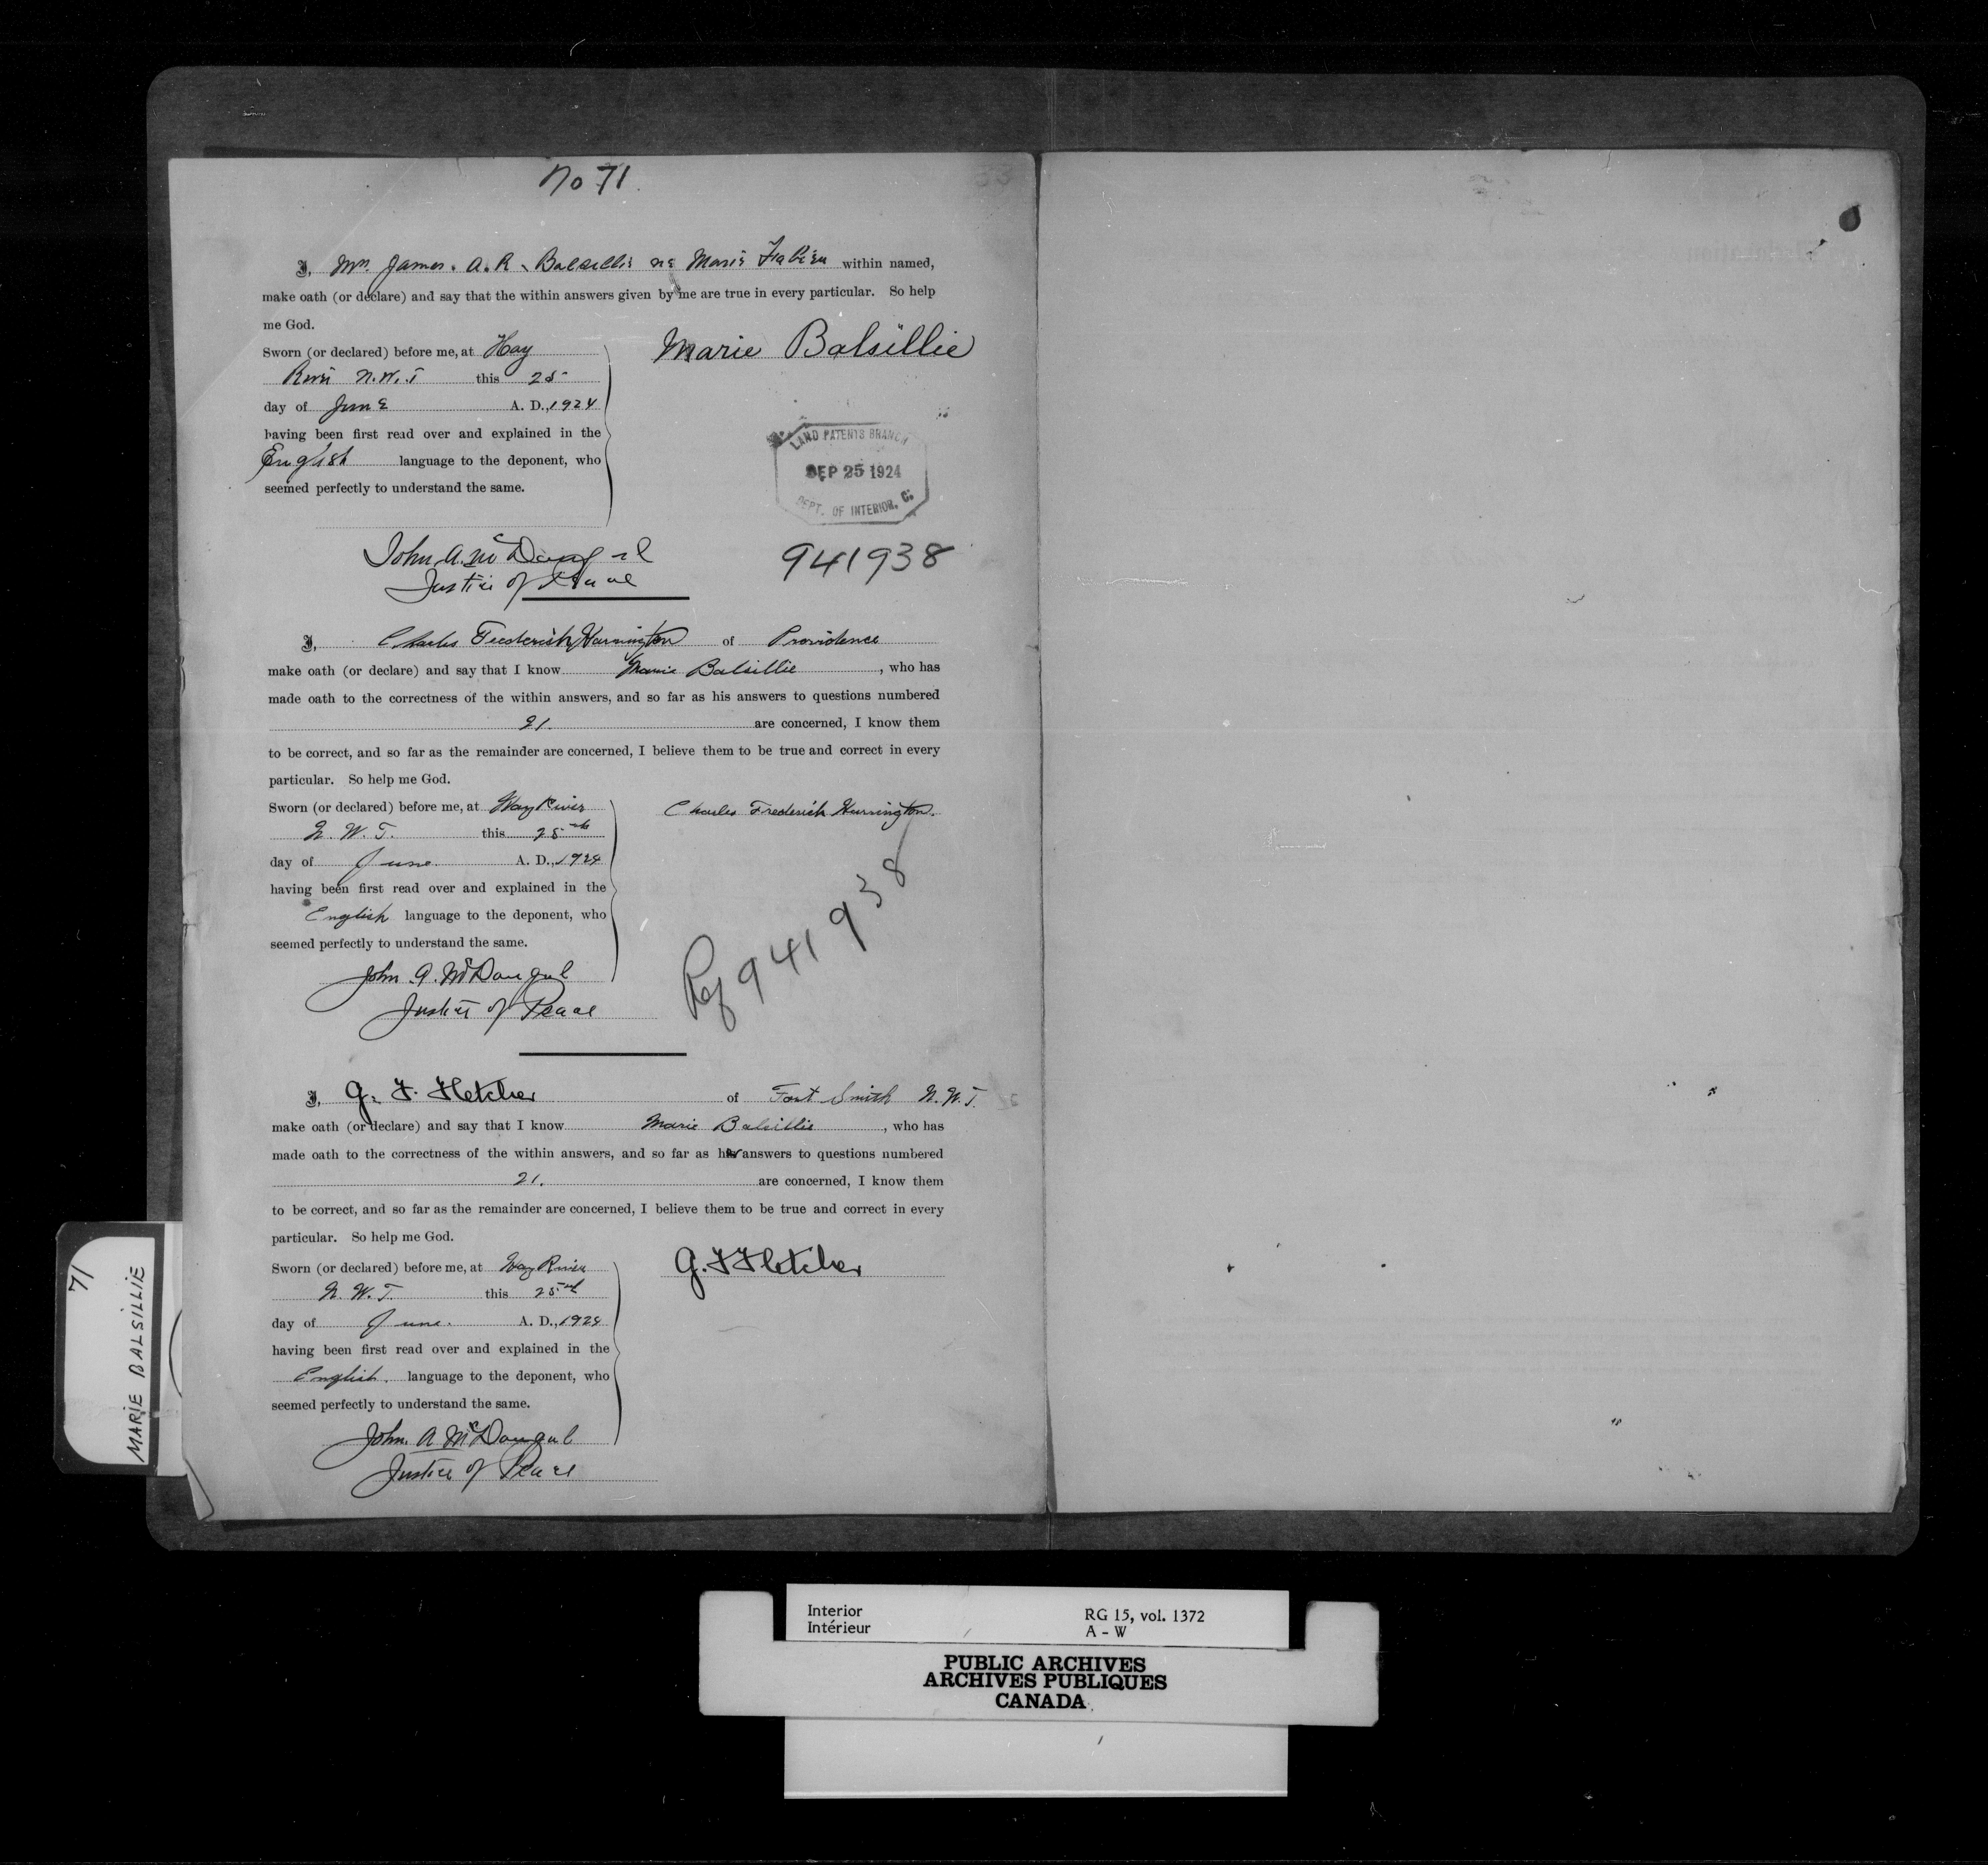 No 71.
I, Mrs. James. A. R. Balsillie né Marie Fabien within named,
make oath (or declare) and say that the within answers given by me are true in every particular. So help
me God.
Sworn (or declared) before me, at Hay
River N.W.T this 25
day of June A. D., 1924
having been first read over and explained in the
English language to the deponent, who
seemed perfectly to understand the same.
Marie Balsillie
LAND PATENTS BRANCH
SEP 25 1924
DEPT. OF INTERIOR.
John A. McDougal
Justice of Peace
941938
I, Charles Frederick Harrington of Providence
make oath (or declare) and say that I know Marie Balsillie, who has
made oath to the correctness of the within answers, and so far as his answers to questions numbered
21. are concerned, I know them
to be correct, and so far as the remainder are concerned, I believe them to be true and correct in every
particular. So help me God.
Sworn (or declared) before me, at Hay River
N. W. T. this 25th
day of June. A. D., 1924
having been first read over and explained in the
English language to the deponent, who
seemed perfectly to understand the same.
Charles Frederick Harrington.
Ref 941938
John A. McDougal
Justice of Peace
I, G. F. Fletcher of Fort Smith N.W.T.
make oath (or declare) and say that I know Marie Balsillie, who has
made oath to the correctness of the within answers, and so far as her answers to questions numbered
21. are concerned, I know them
to be correct, and so far as the remainder are concerned, I believe them to be true and correct in every
particular. So help me God.
Sworn (or declared) before me, at Hay River
N. W. T. this 25th
day of June. A. D., 1924
having been first read over and explained in the
English. language to the deponent, who
seemed perfectly to understand the same.
G. F Fletcher
John. A McDougal
Justice of Peace
71
MARIE BALSILLIE
Interior RG 15, vol. 1372
Intérieur A - W
PUBLIC ARCHIVES
ARCHIVES PUBLIQUES
CANADA